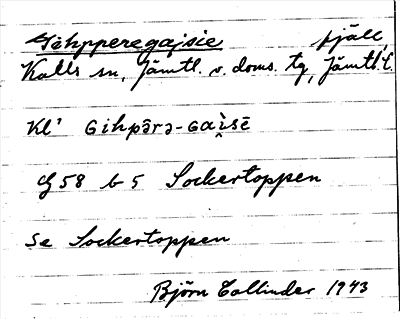 Gihpperegajsie fjäll,
Kalls sn, Jämtl. v. doms. tg, Jämtl. l.
Kl' Gihpârə-Gaìsē
G 58 b 5 Sockertoppen
Se Sockertoppen
Björn Collinder 1943